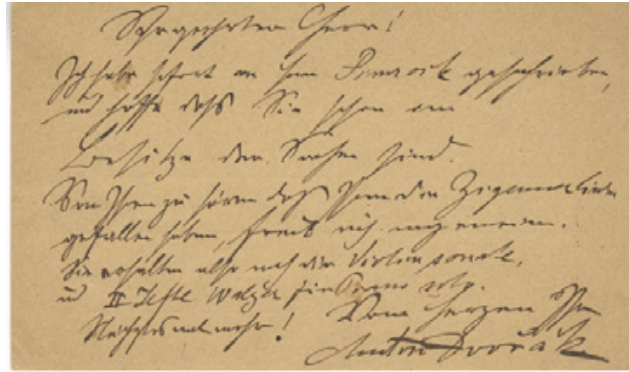 Sehr geehrter Herr!
Ich habe sofort an Herrn Simrock geschrieben,
und hoffe daß Sie schon am
Besitze der Sachen sind.
Von Ihnen zu hören daß Ihnen die Zigeunerlieder
gefallen haben, freut mich ungemein.
Sie erhalten also noch die Violinsonate,
und II Hefte Walzer für Piano
Nächstens mehr! Vom Herzen Ihr
Antón Dvořák